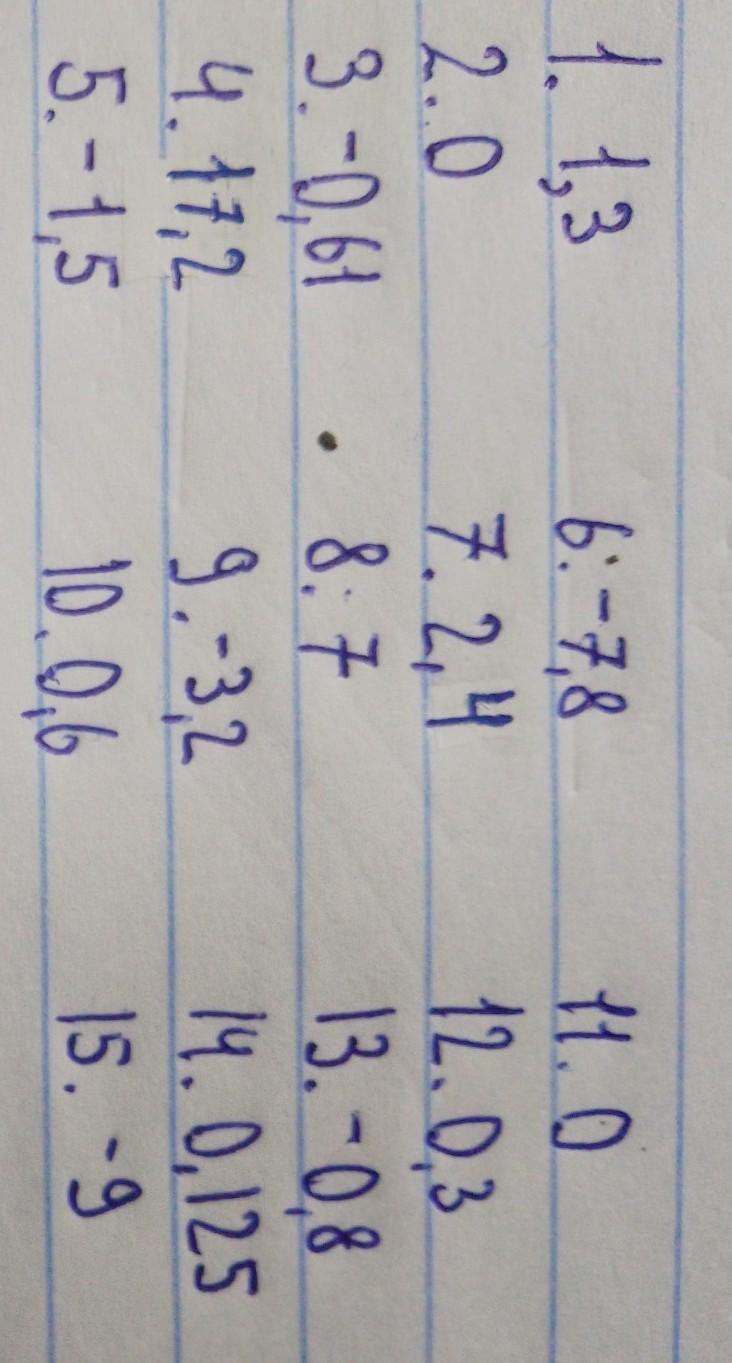 1. 1,3 6. -7,8 11. 0
2. 0 7. 2,4 12. 0,3
3. -0,61 8. 7 13. -0,8
4. 17,2 9. -3,2 14. 0,125
5. -1,5 10. 0,6 15. -9